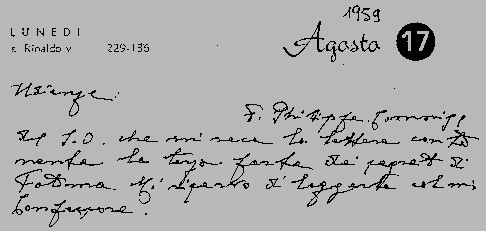 LUNEDI
s. Rinaldo v. 229-136
1959
Agosto 17
Udienze:
F. Philippe. Commiss.
del S.O. che mi reca la lettera conte-
nente la terza parte dei segreti di
Fatima. Mi riserbo di leggerla col mio
Confessore.